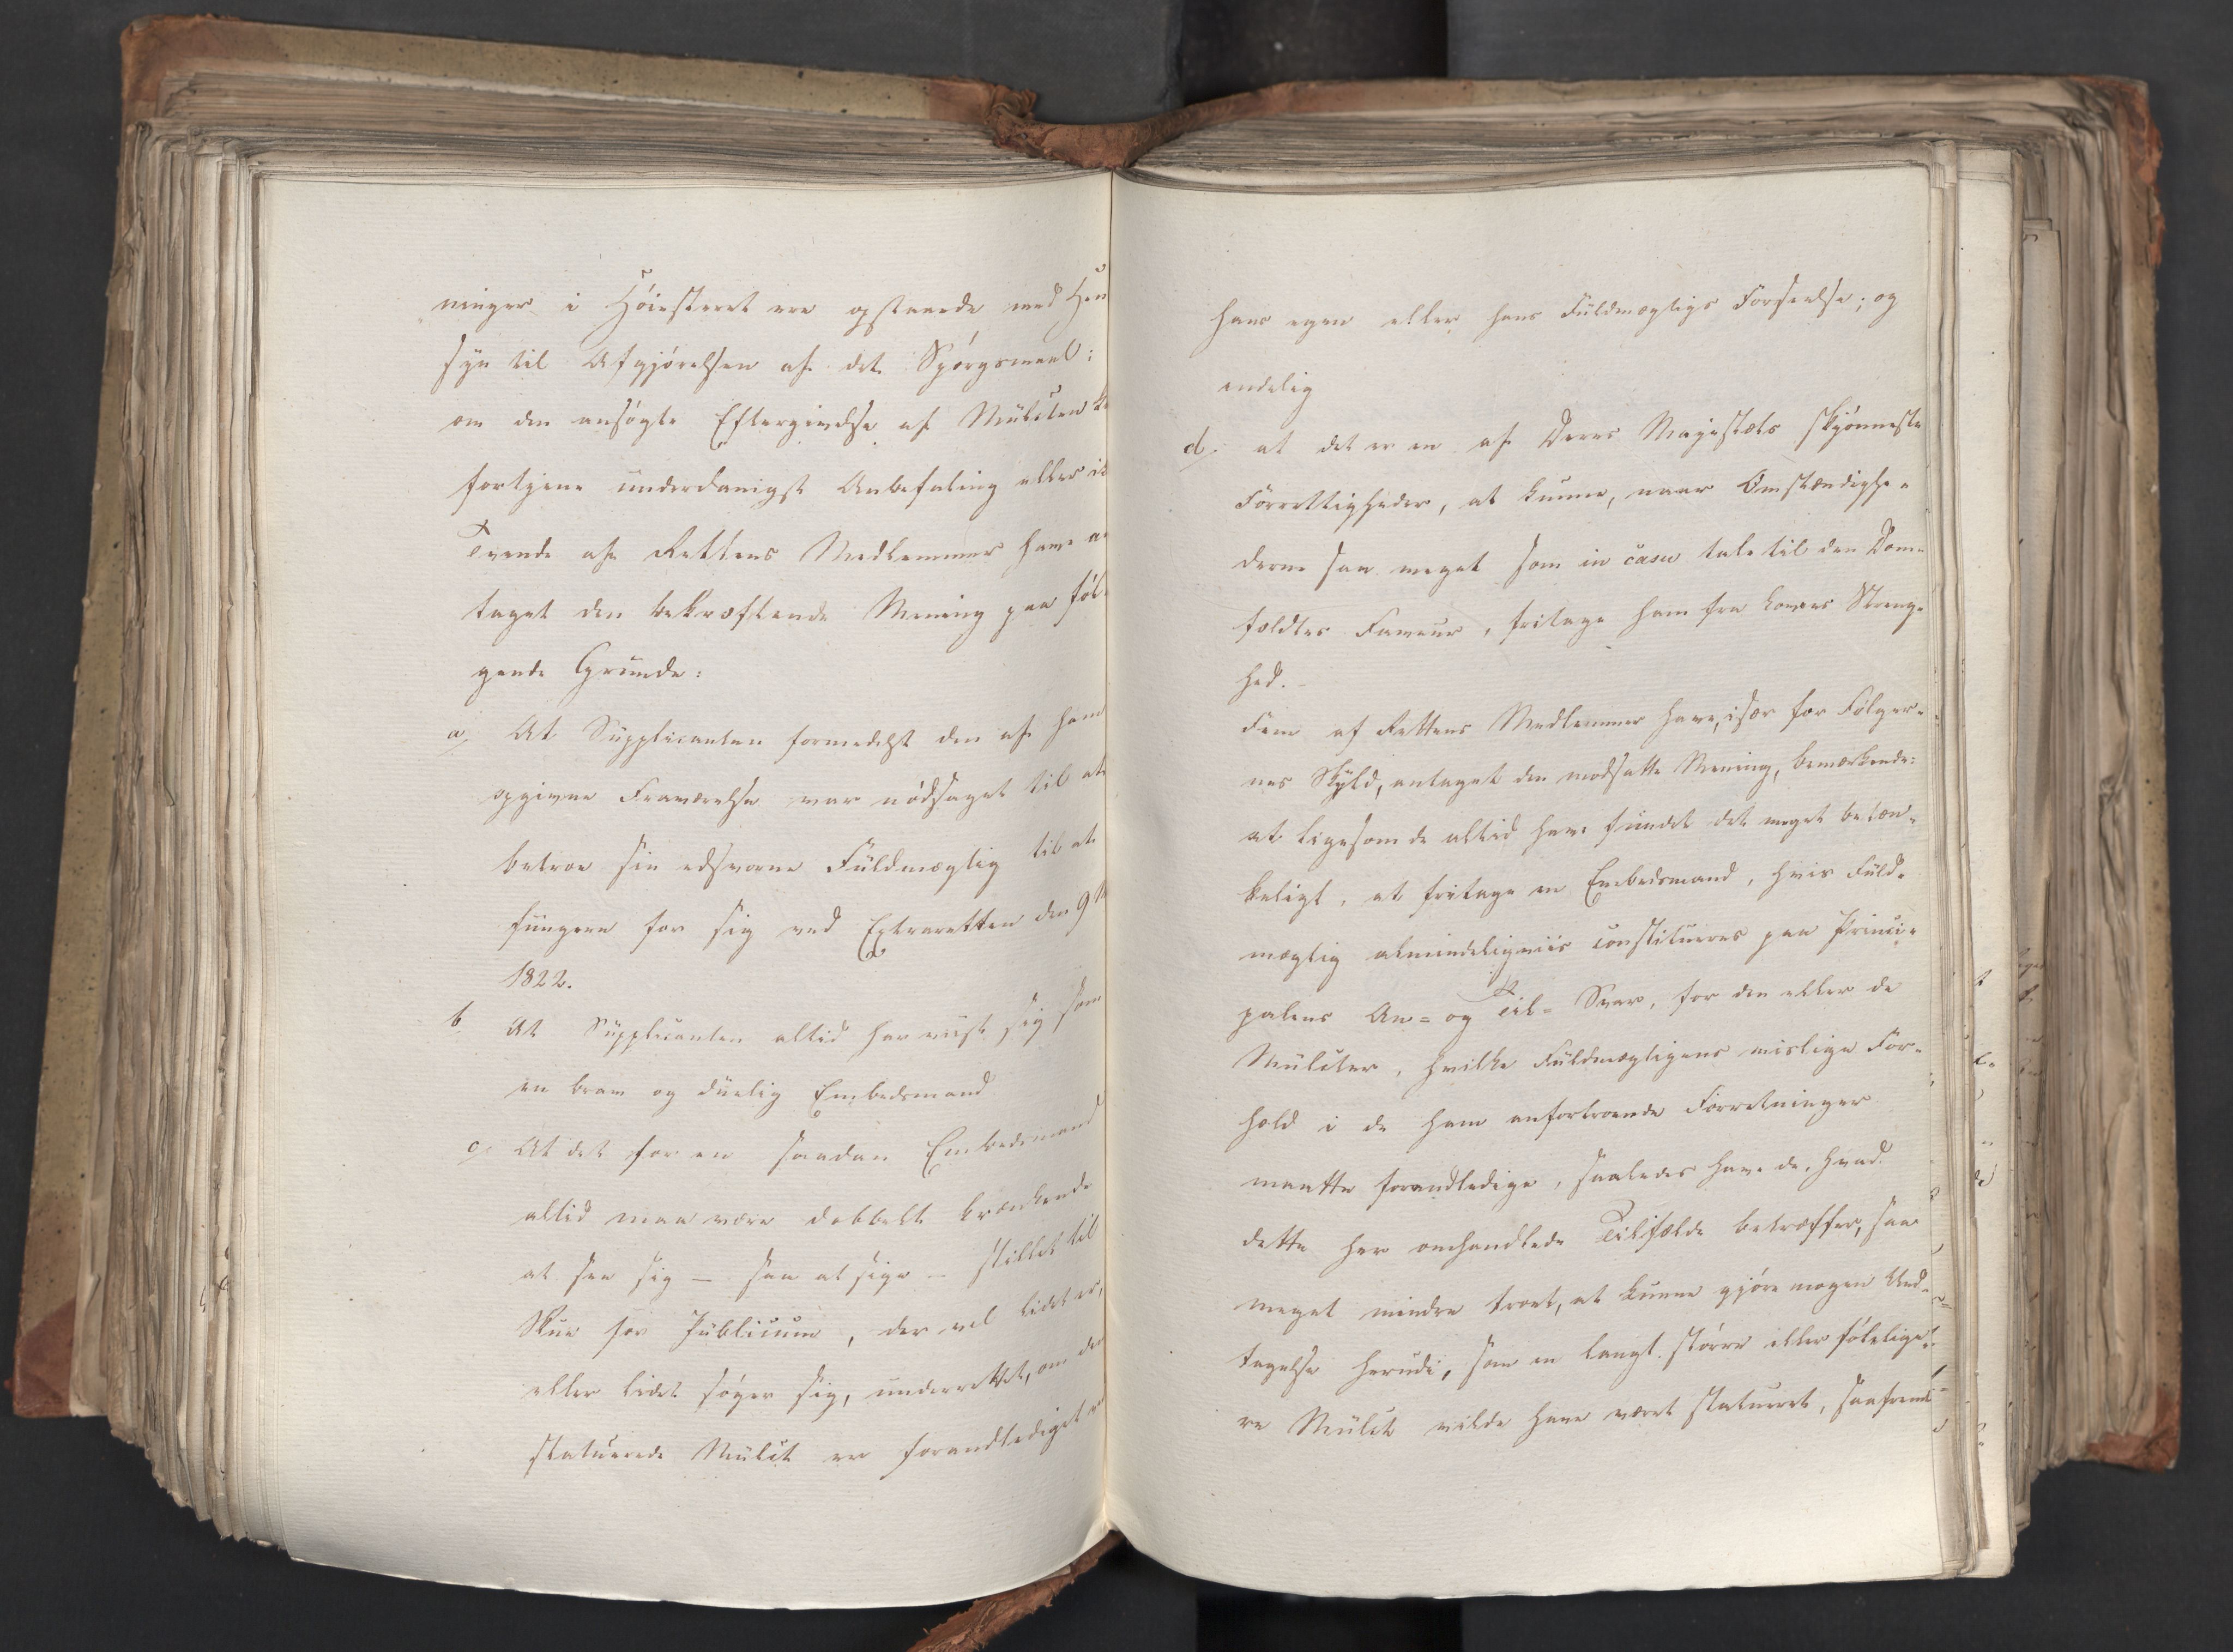 ninger i Höiesteret ere opstaaede med Hen
syn til Afgjörelsen af det Spörgsmaal:
om den ansögte Eftergivelse af Mulcten
fortjene underdanigst Anbefaling eller
Tvende af Rettens Medlemmer have
taget den bekræftende Mening paa föl
gende Grunde:
a, At Supplicanten formedelst den af ham
opgivne Fraværelse var nödsaget til at
betroe sin edsvorne Fuldmægtig til at
fungere for sig ved Extraretten den 9
1822.
b. At Supplicanten altid har viist sig som
en brav og duelig Embedsmand
c, At det for en saadan Embedsmand
altid maa være dobbelt krænkende
at see sig — saa at sige — stillet til
Skue for Publicum, der vel lidet er,
eller lidet söger sig, underrettet, om den
statuerede Mulct er foranlediget
hans egen eller hans Fuldmægtigs Forseelse; og
endelig
d, at det er en af Deres Majestæts skjönneste
Forrettigheder, at kunne, naar Omstændighe-
derne saa meget som in casu tale til den Dom-
fældtes Faveur, fritage ham fra Lovens Streng-
hed.
Fem af Rettens Medlemmer have, især for Fölger-
nes Skyld, antaget den modsatte Mening, bemærkende:
at ligesom de altid have fundet det meget betæn-
keligt, at fritage en Embedsmand, hvis Fuld-
mægtig almindeligviis constitueres paa Princi-
palens An= og Til= Svar, for den eller de
Mulcter, hvilke Fuldmægtigens mislige For-
hold i de ham anfortroede Forretninger
maatte foranledige, saaledes have de, hvad
dette her omhandlede Tilfælde betræffer, saa
meget mindre troet, at kunne gjöre nogen Und-
tagelse herudi, som en langt större eller fölelige-
re Mulct vilde have været statueret, saafremt